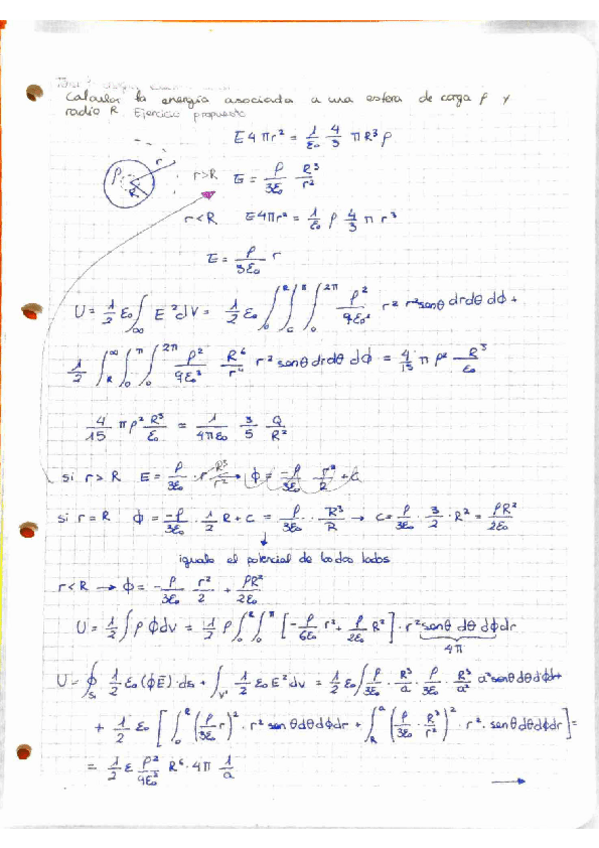 Calcular la energía asociada a una esfera de carga ρ y
radio R. Ejercicio propuesto
E4πr² = 1/ε₀ 4/3 πR³ρ
ρ R r
r>R E = ρ/3ε₀ R³/r²
r<R E4πr² = 1/ε₀ ρ 4/3 π r³
E = ρ/3ε₀ r
U = 1/2 ε₀ ∫∞ E² dV = 1/2 ε₀ ∫₀^R ∫₀^π ∫₀^2π ρ²/9ε₀² r² r² senθ dr dθ dϕ +
1/2 ∫_R^∞ ∫₀^π ∫₀^2π ρ²/9ε₀² R⁶/r⁴ r² senθ dr dθ dϕ = 4/15 π ρ² R⁵/ε₀
4/15 πρ² R⁵/ε₀ = 1/4πε₀ 3/5 Q/R²
si r>R E = ρ/3ε₀ · r R³/r² → ϕ = -ρ/3ε₀ r²/2 + C
si r=R ϕ = -ρ/3ε₀ · 1/2 R + C = ρ/3ε₀ · R³/R → C = ρ/3ε₀ · 3/2 · R² = ρR²/2ε₀
igualo el potencial de los dos lados
r<R → ϕ = -ρ/3ε₀ r²/2 + ρR²/2ε₀
U = 1/2 ∫ ρ ϕ dv = 1/2 ρ ∫₀^R ∫₀^π [-ρ/6ε₀ r² + ρ/2ε₀ R²] · r² senθ dθ dϕ dr
4π
U = ∮_S₁ 1/2 ε₀ (ϕE) · ds + ∫_V' 1/2 ε₀ E² dv = 1/2 ε₀ ∫ ρ/3ε₀ · R³/a · ρ/3ε₀ · R³/a² a² senθ dθ dϕ +
+ 1/2 ε₀ [∫₀^R (ρ/3ε₀ r)² · r² senθ dθ dϕ dr + ∫_R^a (ρ/3ε₀ · R³/r²)² · r² · senθ dθ dϕ dr] =
= 1/2 ε ρ²/9ε₀² R⁶ · 4π 1/a